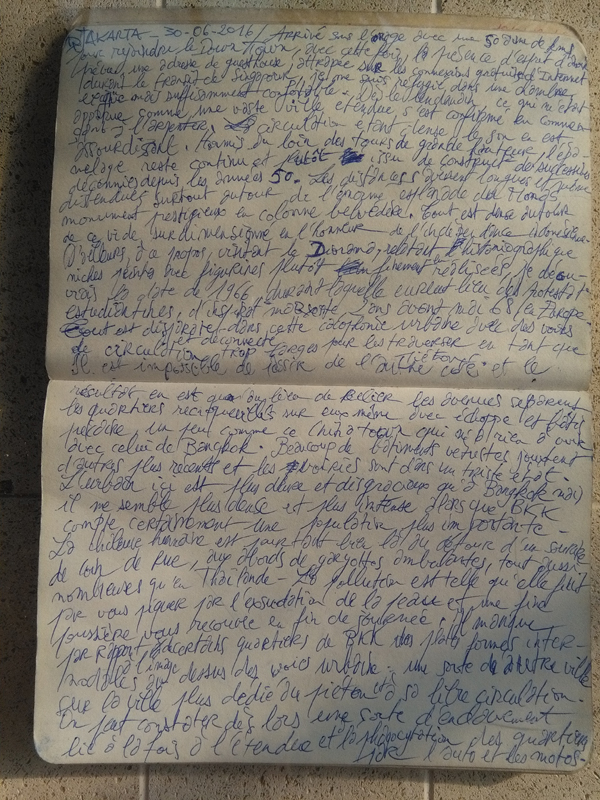 JAKARTA - 30-06-2016 / Arrivé sur l'orage avec une 50aine de
pour rejoindre le Down Town, avec cette fois la présence d'esprit d'avoir
prévu une adresse de guesthouse, attrapée sur les connexions gratuites d'Internet
durant le transit de Singapour, je me suis réfugié dans une
mais suffisamment confortable. Dès le lendemain, ce qui m'était
apparue comme une vaste ville étendue, s'est confirmé en commen-
çant à l'arpenter. circulation étant dense le son en est
assourdissant. Hormis du loin des tours de grande hauteur,
mélage reste continu et plutôt issu de
décennies depuis les années 50. Les distances s'avèrent longues et même
distendues surtout autour de l'énorme esplanade du Monas
monument prestigieux en colonne belvédère. Tout est donc autour
de ce vide surdimensionné en l'honneur de l'indépendance indonésienne.
D'ailleurs, à ce propos, visitant le Diorama, relatant l'historiographique
niches avec figurines plutôt finement réalisées, je décou-
vrais la date de 1966 durant laquelle eurent lieu des protestat.
estudiantines, d'inspirat. maoïste, 2 ans avant mai 68 en Europe
Tout est disproportionné dans cette cacophonie urbaine avec des voies
de circulation trop larges pour les traverser en tant que
Il est impossible de passer de l'autre côté et le
résultat en est qu'au lieu de relier les avenues séparent
les quartiers recroquevillés sur eux même avec échoppe et
précaire un peu comme ce Chinatown qui n'a rien à voir
avec celui de Bangkok. Beaucoup de bâtiments vétustes jouxtent
d'autres plus récents et les voiries sont dans un triste état.
L'urbain ici est plus dense et disgracieux qu'à Bangkok mais
il me semble plus dense et plus intense alors que BKK
compte certainement une population plus importante -
La chaleur humaine est pourtant bien là au détour d'un sourire
de coin de rue, aux abords de gargottes ambulantes, tout aussi
nombreuses qu'en Thaïlande - La pollution est telle qu'elle finit
par vous piquer par l'exsudation de la peau et une fine
poussière vous recouvre en fin de journée. Il manque
par rapport à certains quartiers de BKK des plates formes inter-
modales au dessus des voies urbaine ; une sorte d'autre ville
sur la ville plus dédié au piéton et à sa libre circulation.
On peut constater dès lors une sorte d'enclavement
lié à la fois à l'étendue et la phagocytation des quartiers
par l'auto et les motos -